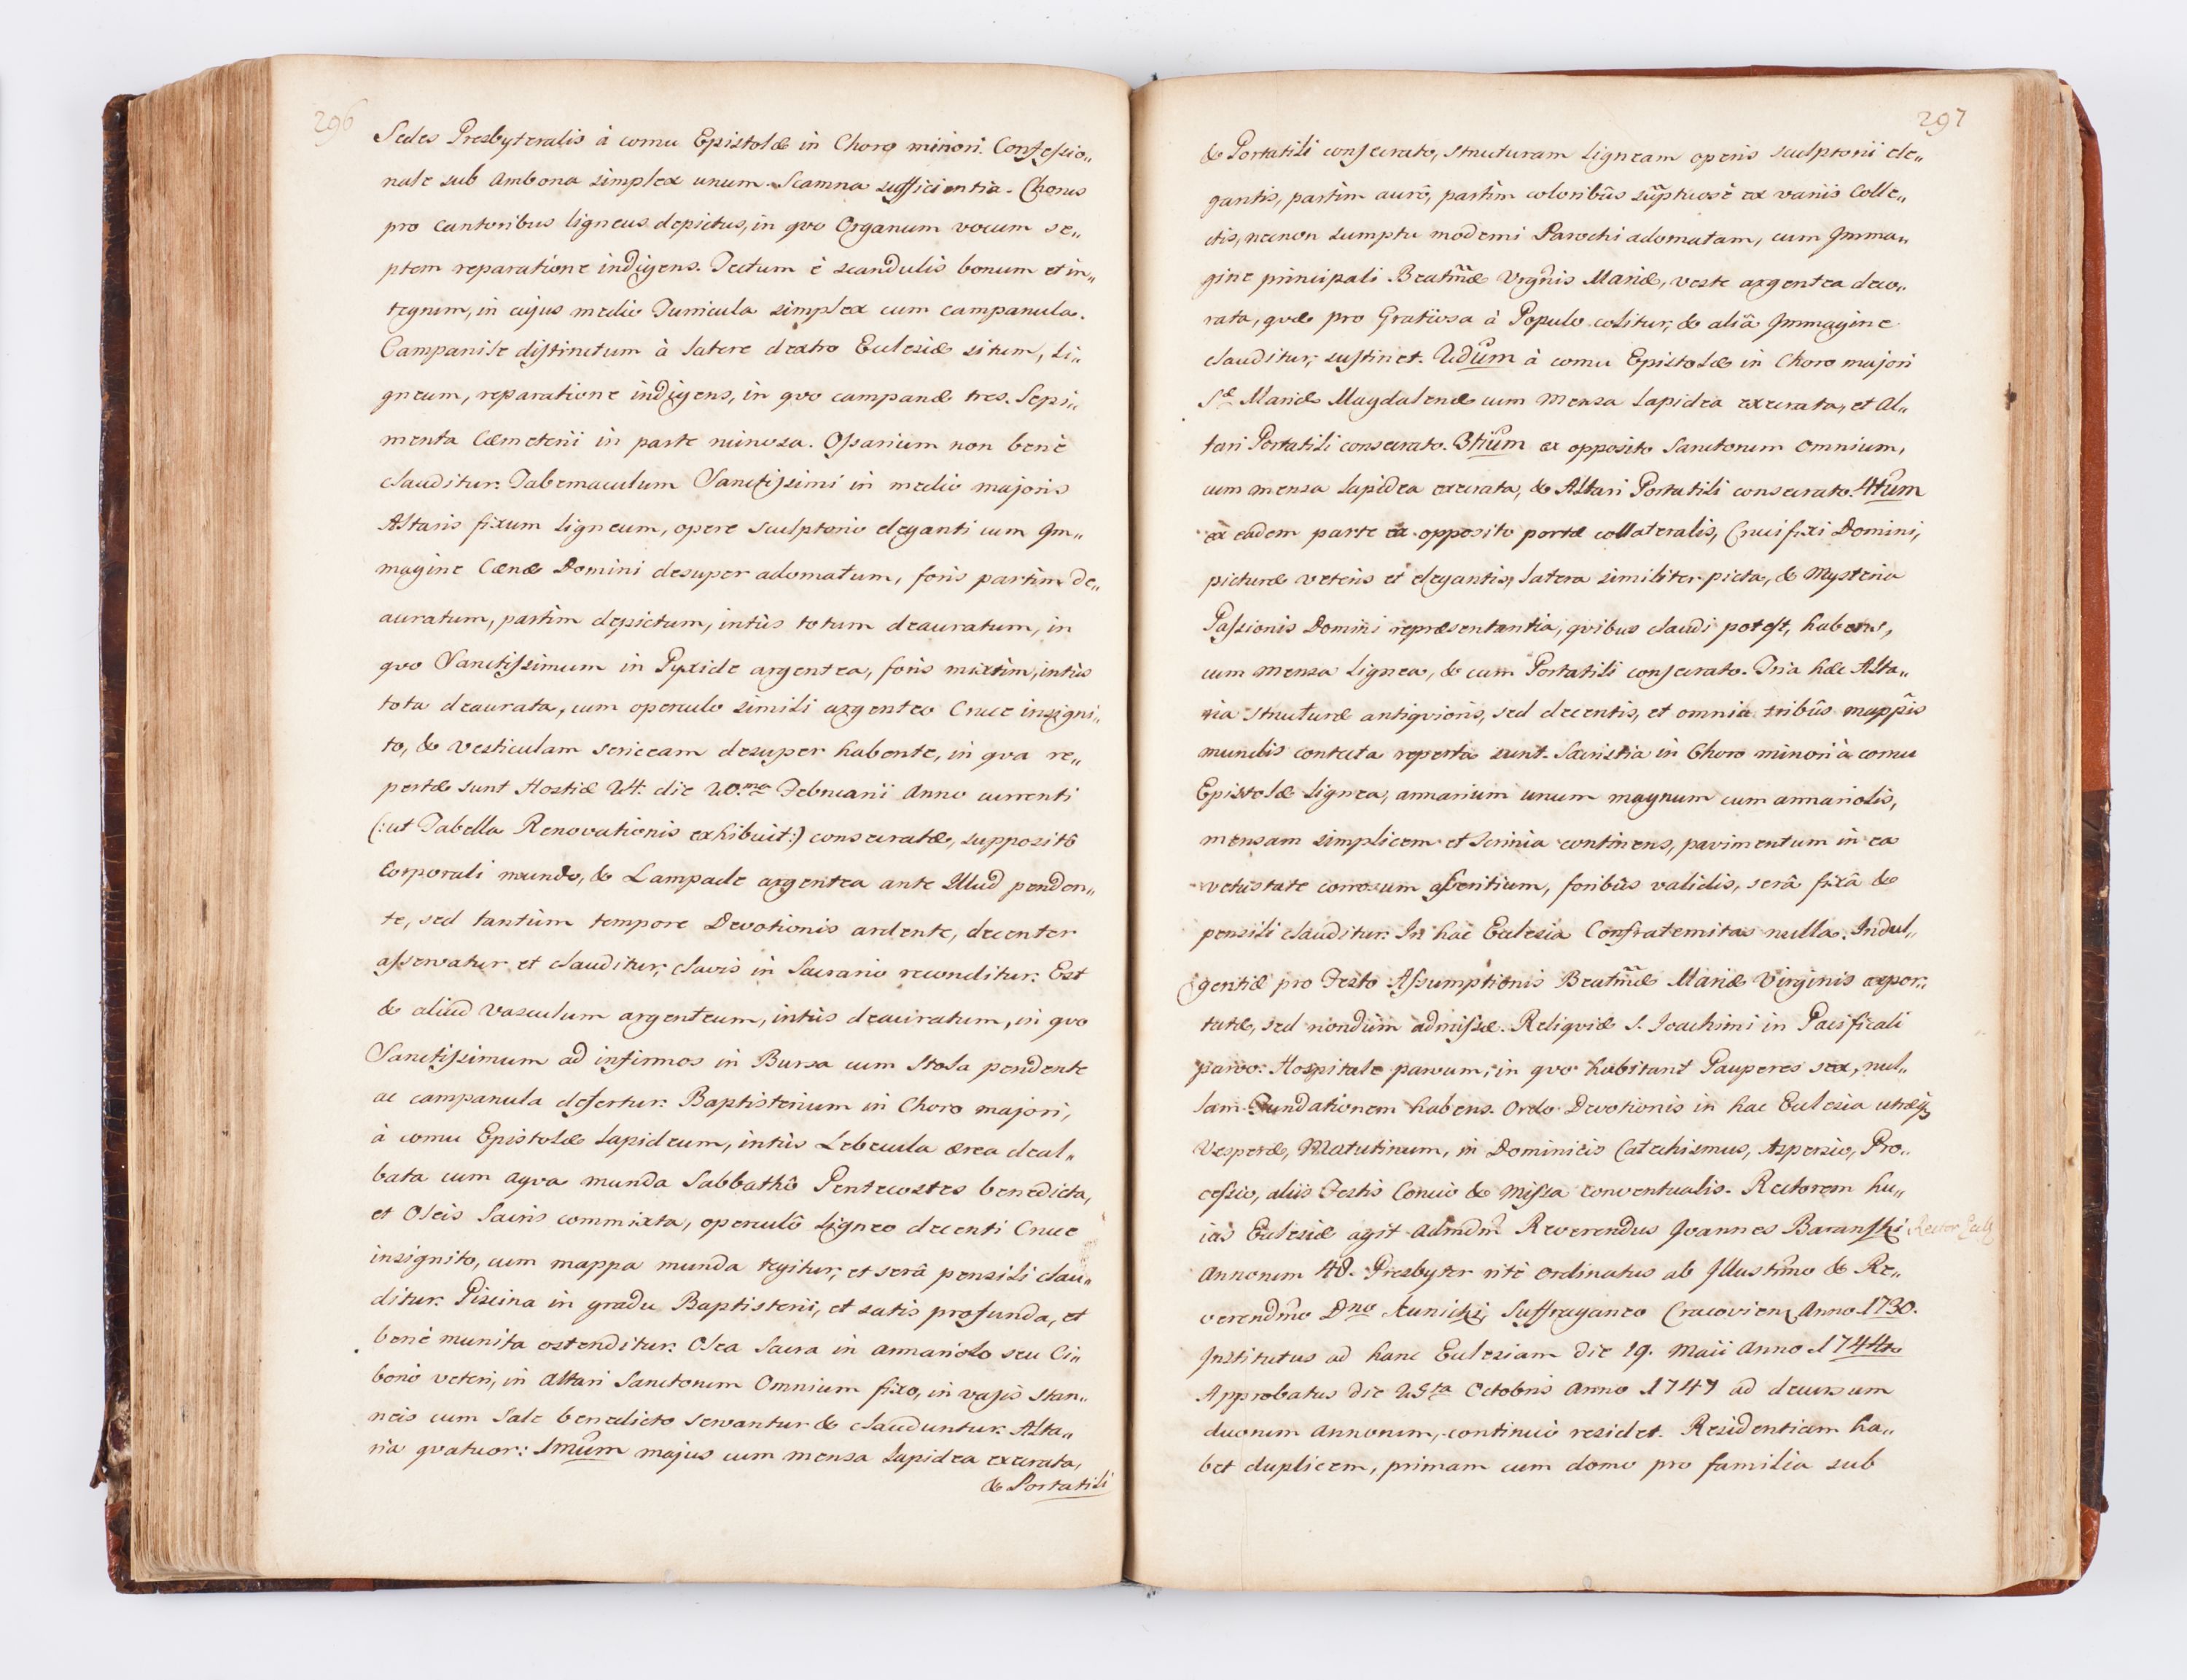 296
Sedes Presbyteralis à cornu Epistolæ in Choro minori. Confessio„
nale sub Ambona simplex unum. Scamna sufficientia. Chorus
pro Cantoribus ligneus depictus, in qvo Organum vocum se„
ptem reparatione indigens. Tectum è scandulis bonum et in„
tegrum, in cujus medio Turricula simplex cum campanula.
Campanile distinctum à latere dextro Ecclesiæ situm, li„
gneum, reparatione indigens, in qvo campanæ tres. Sepi„
menta Cæmeterii in parte ruinosa. Ossarium non benè
clauditur. Tabernaculum Sanctissimi in medio majoris
Altaris fixum ligneum, opere sculptorio eleganti cum Im„
magine Cænæ Domini desuper adornatum, foris partim de„
auratum, partim depictum, intùs totum deauratum, in
qvo Sanctissimum in Pyxide argentea, foris mixtim, intùs
tota deaurata, cum operculo simili argenteo Cruce insigni„
to, & vesticulam sericeam desuper habente, in qva re„
pertæ sunt Hostiæ 24. die 20.ma Februarii Anno currenti
(:ut Tabella Renovationis exhibuit:) consecratæ, suppositô
Corporali mundo, & Lampade argentea ante Illud penden„
te, sed tantùm tempore Devotionis ardente, decenter
asservatur et clauditur, clavis in Sacrario reconditur. Est
& aliud vasculum argenteum, intùs deauratum, in qvo
Sanctissimum ad infirmos in Bursa cum Stola pendente
ac campanula defertur. Baptisterium in Choro majori,
à cornu Epistolæ lapideum, intùs Lebecula ærea deal„
bata cum aqva munda Sabbathô Pentecostes benedicta,
et Oleis Sacris commixta, operculô ligneo decenti Cruce
insignito, cum mappa munda tegitur, et serâ pensili clau„
ditur. Piscina in gradu Baptisterii, et satis profunda, et
benè munita ostenditur. Olea Sacra in armariolo seu Ci„
borio veteri, in Altari Sanctorum Omnium fixo, in vasis stan„
neis cum Sale benedicto servantur & clauduntur. Alta„
ria qvatuor: 1mum majus cum mensa lapidea execrata,
& Portatili
297
& Portatili consecrato, structuram ligneam operis sculptorii ele„
gantis, partim aurô, partim coloribûs sũptuosè ex variis Colle„
ctis, necnon sumptu moderni Parochi adornatam, cum Imma„
gine principali Beatmæ Vrgnis Mariæ, veste argentea deco„
rata, qvæ pro Gratiosa à Populo colitur, & aliâ Immagine
clauditur, sustinet. 2dum à cornu Epistolæ in Choro majori
Sæ Mariæ Magdalenæ cum mensa lapidea execrata, et Al„
tari Portatili consecrato. 3tium ex opposito Sanctorum Omnium,
cum mensa lapidea execrata, & Altari Portatili consecrato. 4tum
ex eadem parte ex opposito portæ collateralis, Crucifixi Domini,
picturæ veteris et elegantis, latera similiter picta, & Mysteria
Passionis Domini repræsentantia, qvibus claudi potest, habens,
cum mensa lignea, & cum Portatili consecrato. Tria hæc Alta„
ria structuræ antiqvioris, sed decentis, et omnia tribûs mappis
mundis contecta reperta sunt. Sacristia in Choro minori à cornu
Epistolæ lignea, armarium unum magnum cum armariolis,
mensam simplicem et Scrinia continens, pavimentum in ea
vetustate corrosum asseritium, foribûs validis, serâ fixâ &
pensili clauditur. In hac Ecclesia Confraternitas nulla. Indul„
gentiæ pro Festo Assumptionis Beatmæ Mariæ Virginis expor„
tatæ, sed nondùm admissæ. Reliqviæ S. Joachimi in Pacificali
parvo. Hospitale parvum, in qvo habitant Pauperes sex, nul„
lam Fundationem habens. Ordo Devotionis in hac Ecclesia utræq
Vesperæ, Matutinum, in Dominicis Catechismus, Aspersio, Pro„
cessio, aliis Festis Concio & Missa conventualis. Rectorem hu„
ius Ecclesiæ agit Admdm Reverendus Joannes Baranski Rector Eccl
Annorum 48. Presbyter ritè Ordinatus ab Illustmo & Re„
verendmo Dno Kunicki, Suffraganeo Cracovien Anno 1730.
Institutus ad hanc Ecclesiam die 19. Maii Anno 1744to
Approbatus die 25ta Octobris Anno 1747 ad decursum
duorum Annorum, continuò residet. Residentiam ha„
bet duplicem, primam cum domo pro familia sub